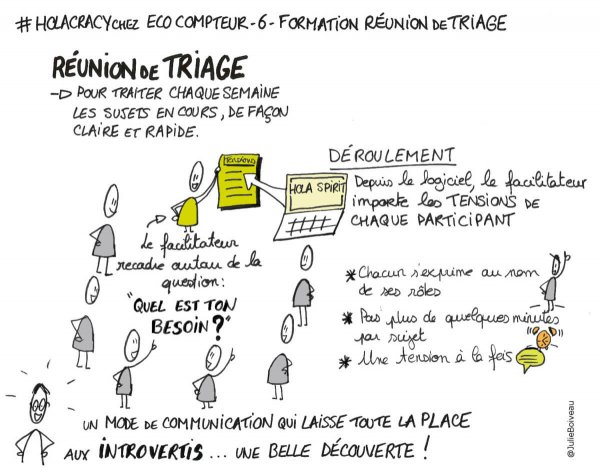 # HOLACRACY CHEZ ECO COMPTEUR - 6 - FORMATION RÉUNION DE TRIAGE
RÉUNION DE TRIAGE
→ POUR TRAITER CHAQUE SEMAINE
LES SUJETS EN COURS, DE FAÇON
CLAIRE ET RAPIDE.
TENSIONS
HOLA SPIRIT
DÉROULEMENT
Depuis le logiciel, le facilitateur
importe les TENSIONS DE
CHAQUE PARTICIPANT
Le facilitateur
recadre autour de la
question:
"QUEL EST TON
BESOIN?"
* Chacun s'exprime au nom
de ses rôles
* Pas plus de quelques minutes
par sujet
* Une tension à la fois
UN MODE DE COMMUNICATION QUI LAISSE TOUTE LA PLACE
AUX INTROVERTIS ... UNE BELLE DÉCOUVERTE !
@JulieBoiveau